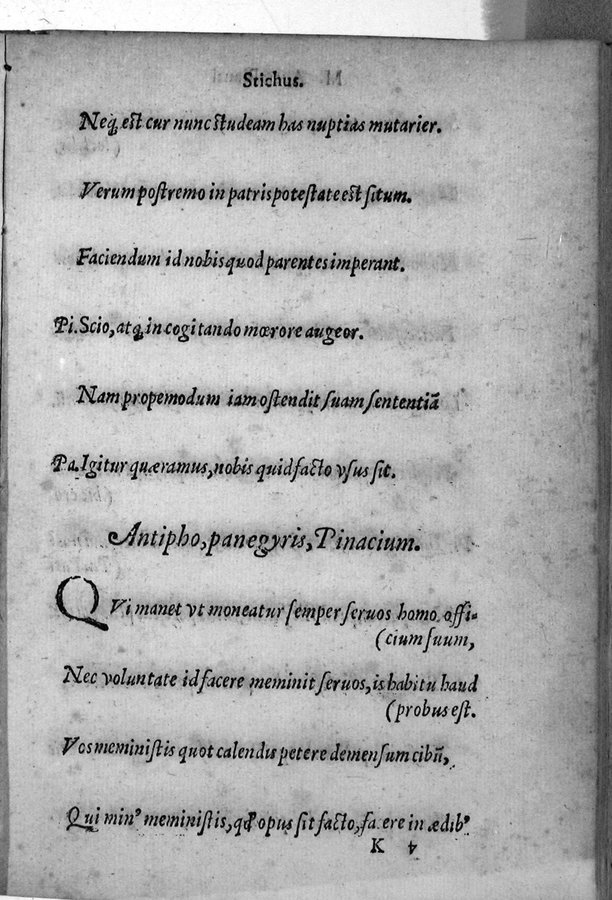 Stichus.
Neq; est cur nunc studeam has nuptias mutarier.
Verum postremo in patris potestate est situm.
Faciendum id nobis quod parentes imperant.
Pi. Scio, atq; in cogitando mœrore augeor.
Nam propemodum iam ostendit suam sententiã
Pa. Igitur quæramus, nobis quid facto vsus sit.
Antipho, panegyris, Pinacium.
QVi manet vt moneatur semper seruos homo offi-
(cium suum,
Nec voluntate id facere meminit seruos, is habitu haud
(probus est.
Vos meministis quot calendis petere demensum cibũ,
Qui minꝰ meministis, qđ opus sit facto, facere in ædibꝰ
K 4